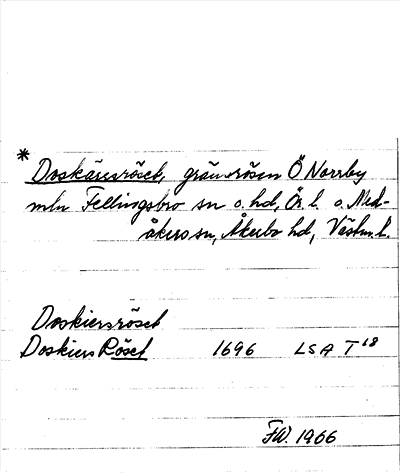 * Doskärsröset, gränsrösen Ö Norrby
mln Fellingsbro sn o. hd, Ör. l. o. Med-
åkers sn, Åkerbo hd, Västm. l.
Doskiersröset
Doskiers Röset 1696 LSA T 18
FW. 1966